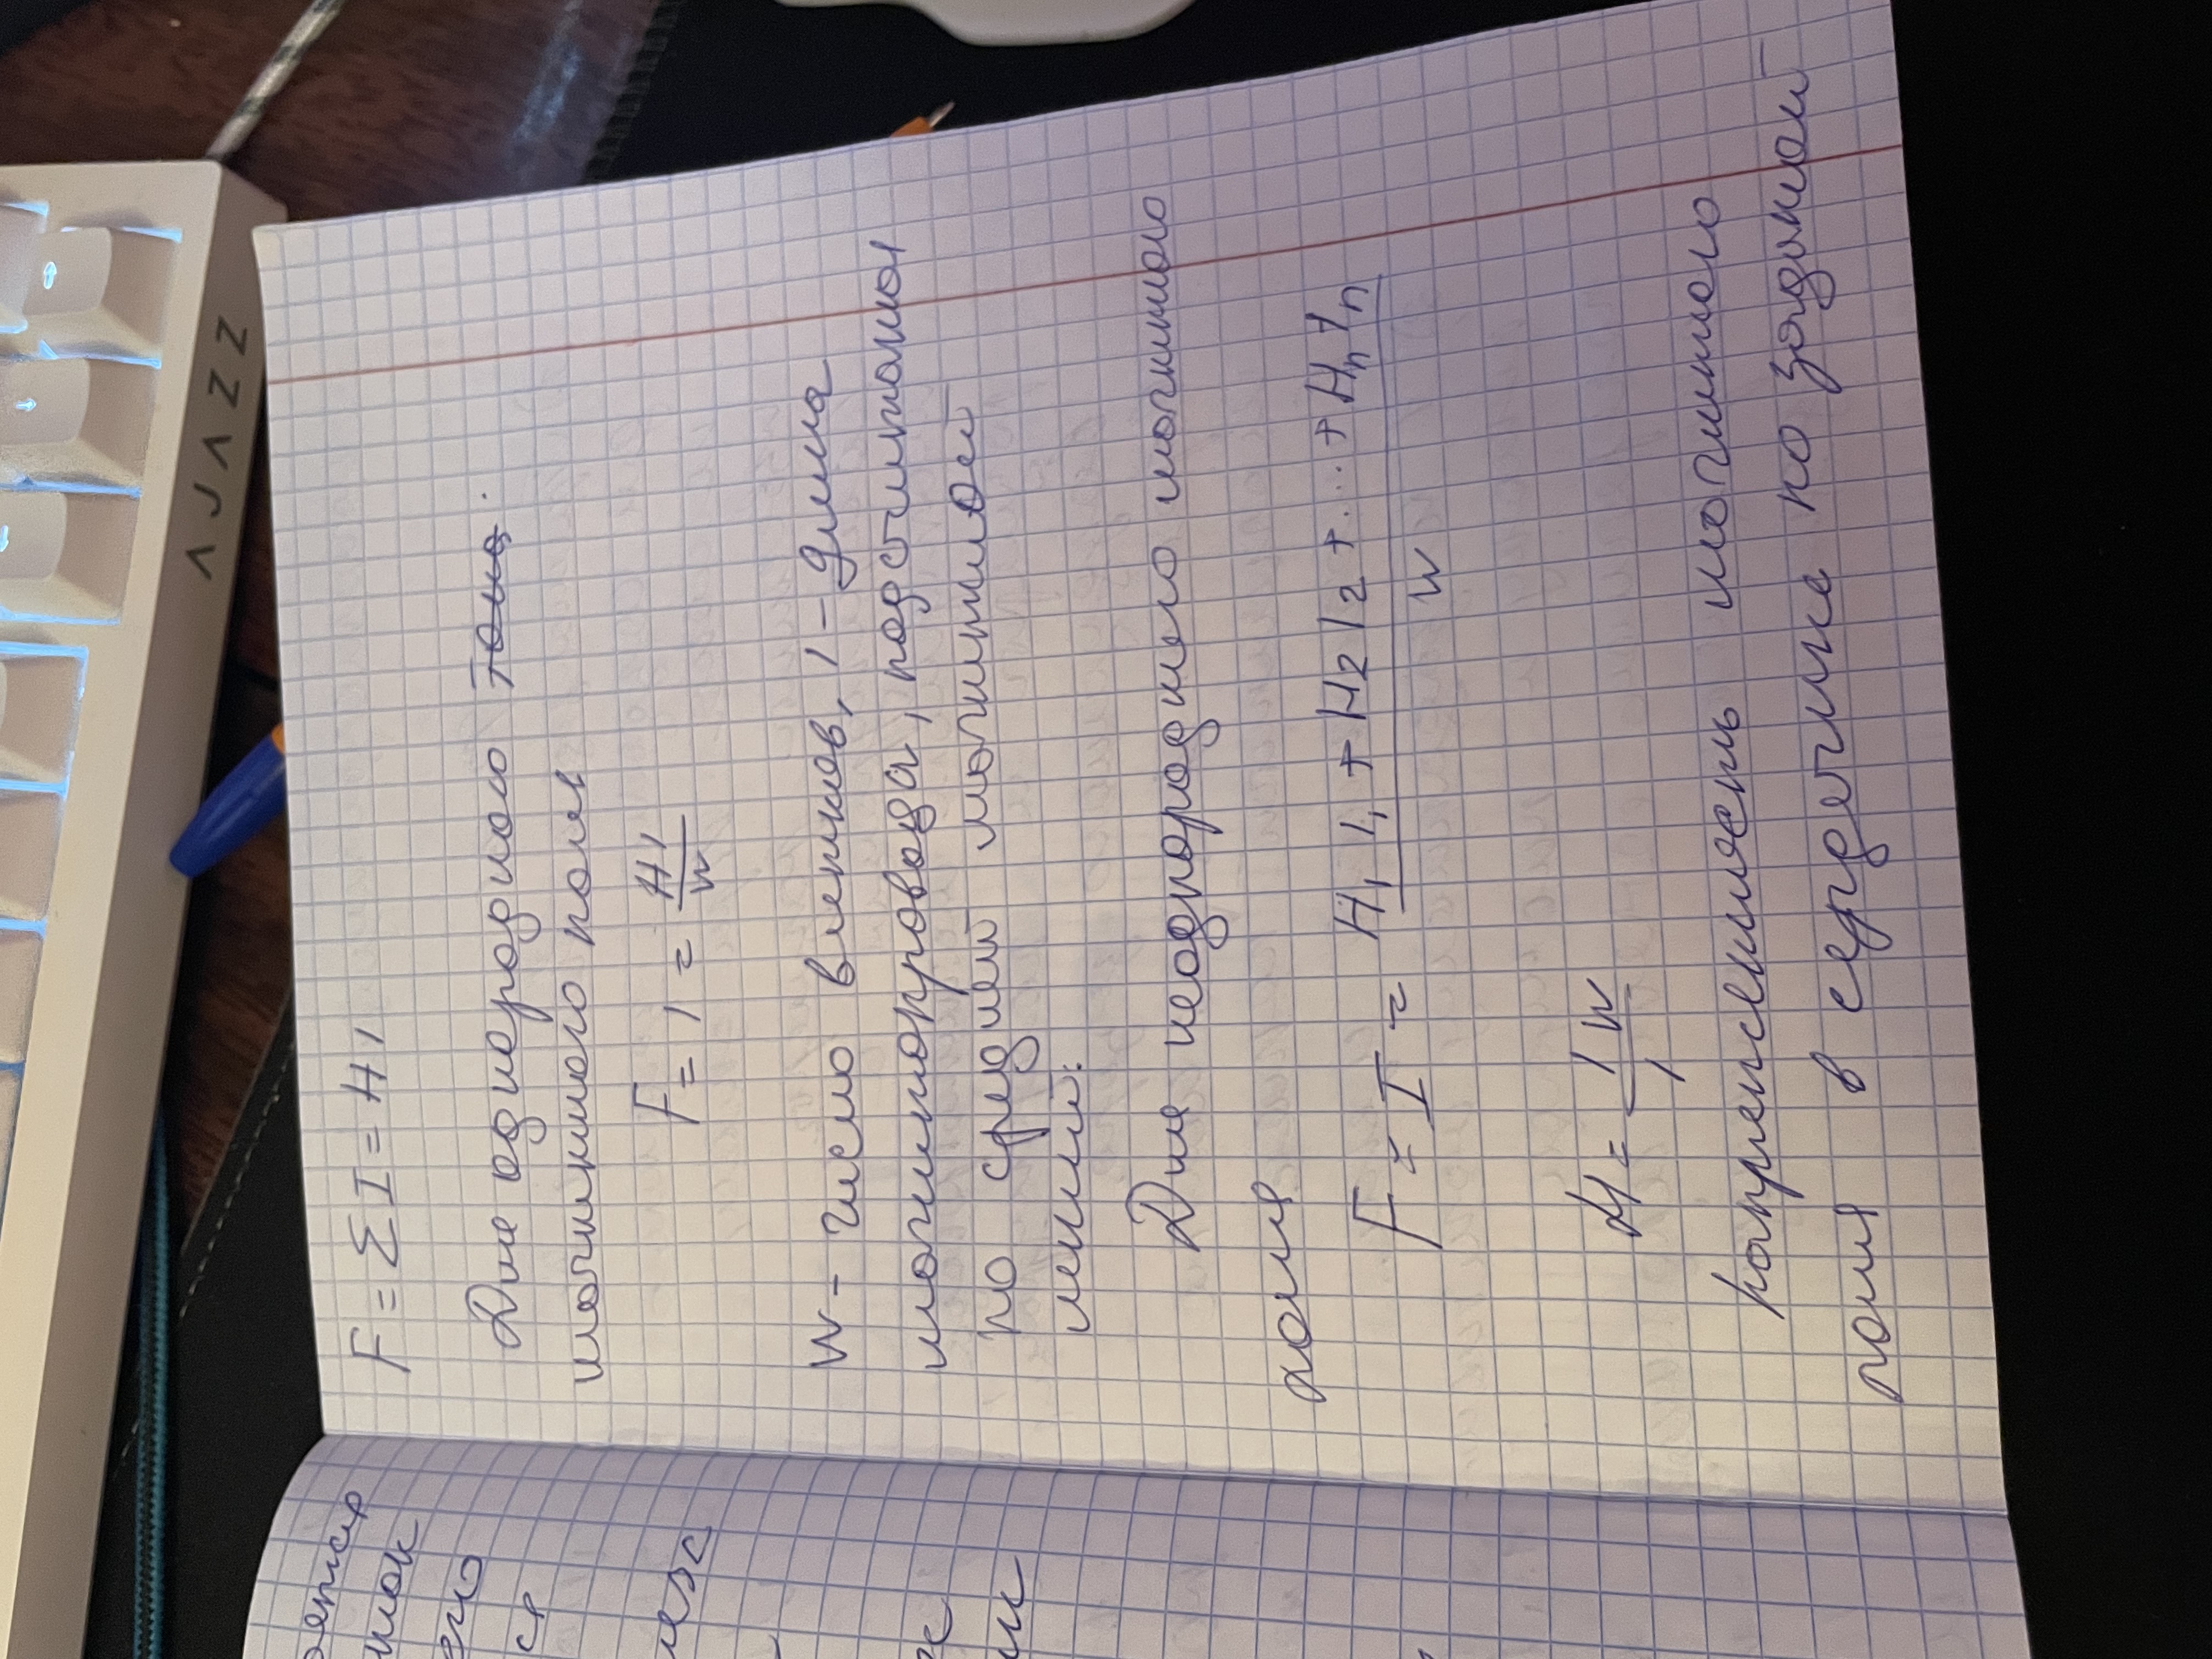 F = Σ I = H l
Для однородного тока.
магнитного поля
F = I = H l / W
W – число витков, l – длина
магнитопровода, подсчитаная
по средней магнитной
линии.
Для неоднородного магнитного
поля
F = I = H₁ l₁ + H₂ l₂ + ... + Hₙ lₙ / W
H = I W / l
Напряженность магнитного
поля в сердечнике по заданной
AJAZZ
ся